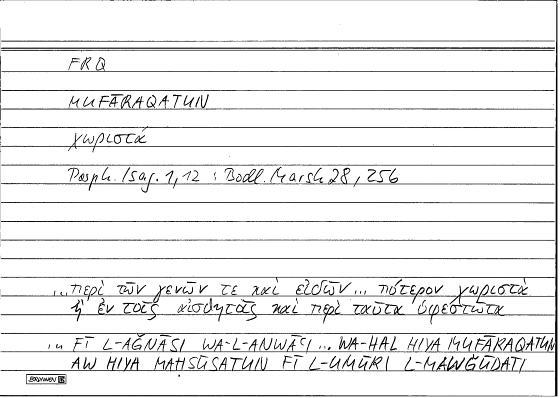 FRQ
MUFĀRAQATUN
χωριστά
Porph. Isag. 1,12 : Bodl. Marsh 28, 256
... περὶ τῶν γενῶν τε καὶ εἰδῶν ... πότερον χωριστὰ
ἢ ἐν τοῖς αἰσθητοῖς καὶ περὶ ταῦτα ὑφεστῶτα
... FĪ L-AǦNĀSI WA-L-ANWĀʿI ... WA-HAL HIYA MUFĀRAQATUN
AW HIYA MAḤSŪSATUN FĪ L-UMŪRI L-MAWǦŪDATI
BRUNNEN